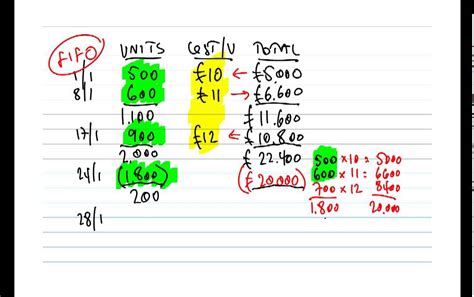 FIFO UNITS COST/U TOTAL
1/1 500 £10 ← £5.000
8/1 600 £11 → £6.600
1.100 £11.600
17/1 900 £12 ← £10.800
2.000 £22.400
24/1 (1.800) (£20000)
200
28/1
500 × 10 = 5000
600 × 11 = 6600
700 × 12 8400
1.800 20.000